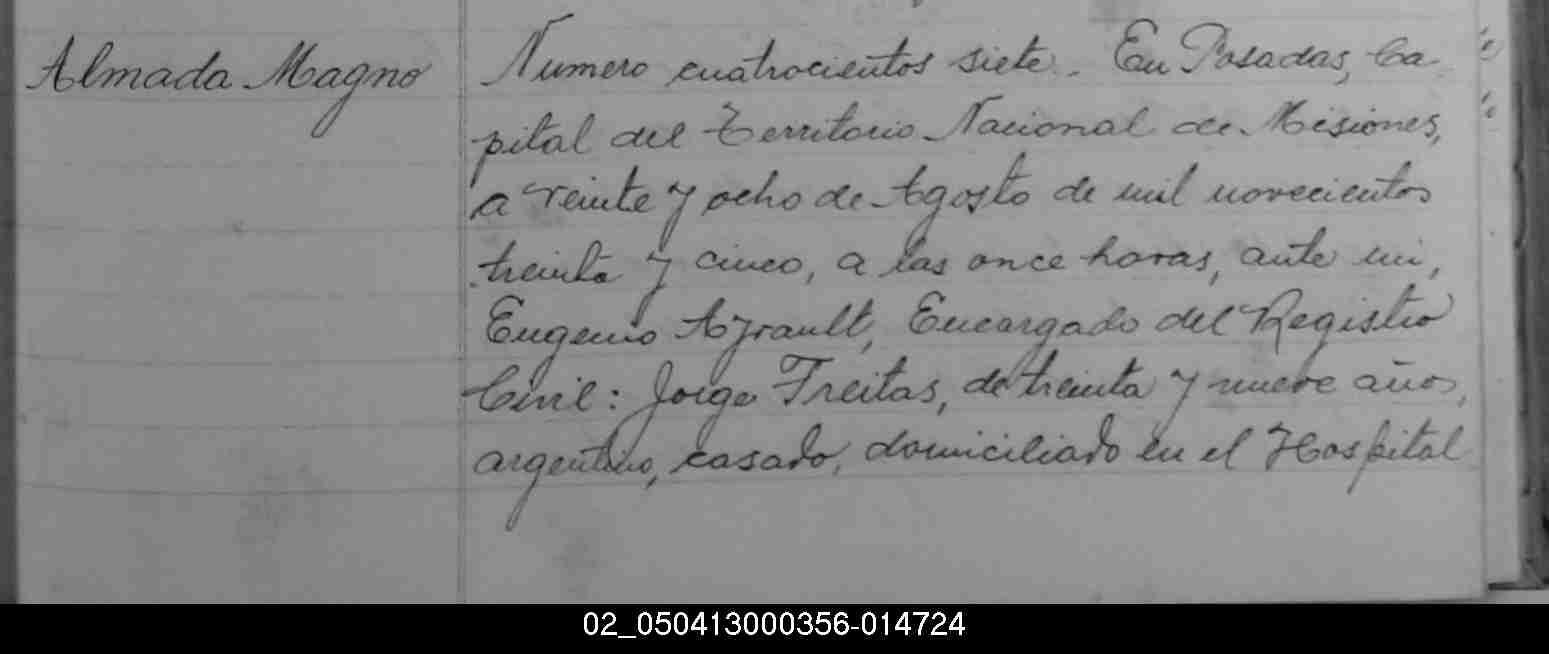 Almada Magno
Numero cuatrocientos siete. En Posadas, Ca-
pital del Territorio Nacional de Misiones,
a veinte y ocho de Agosto de mil novecientos
treinta y cinco, a las once horas, ante mi,
Eugenio Ayrault, Encargado del Registro
Civil: Jorge Freitas, de treinta y nueve años,
argentino, casado, domiciliado en el Hospital
02_050413000356-014724